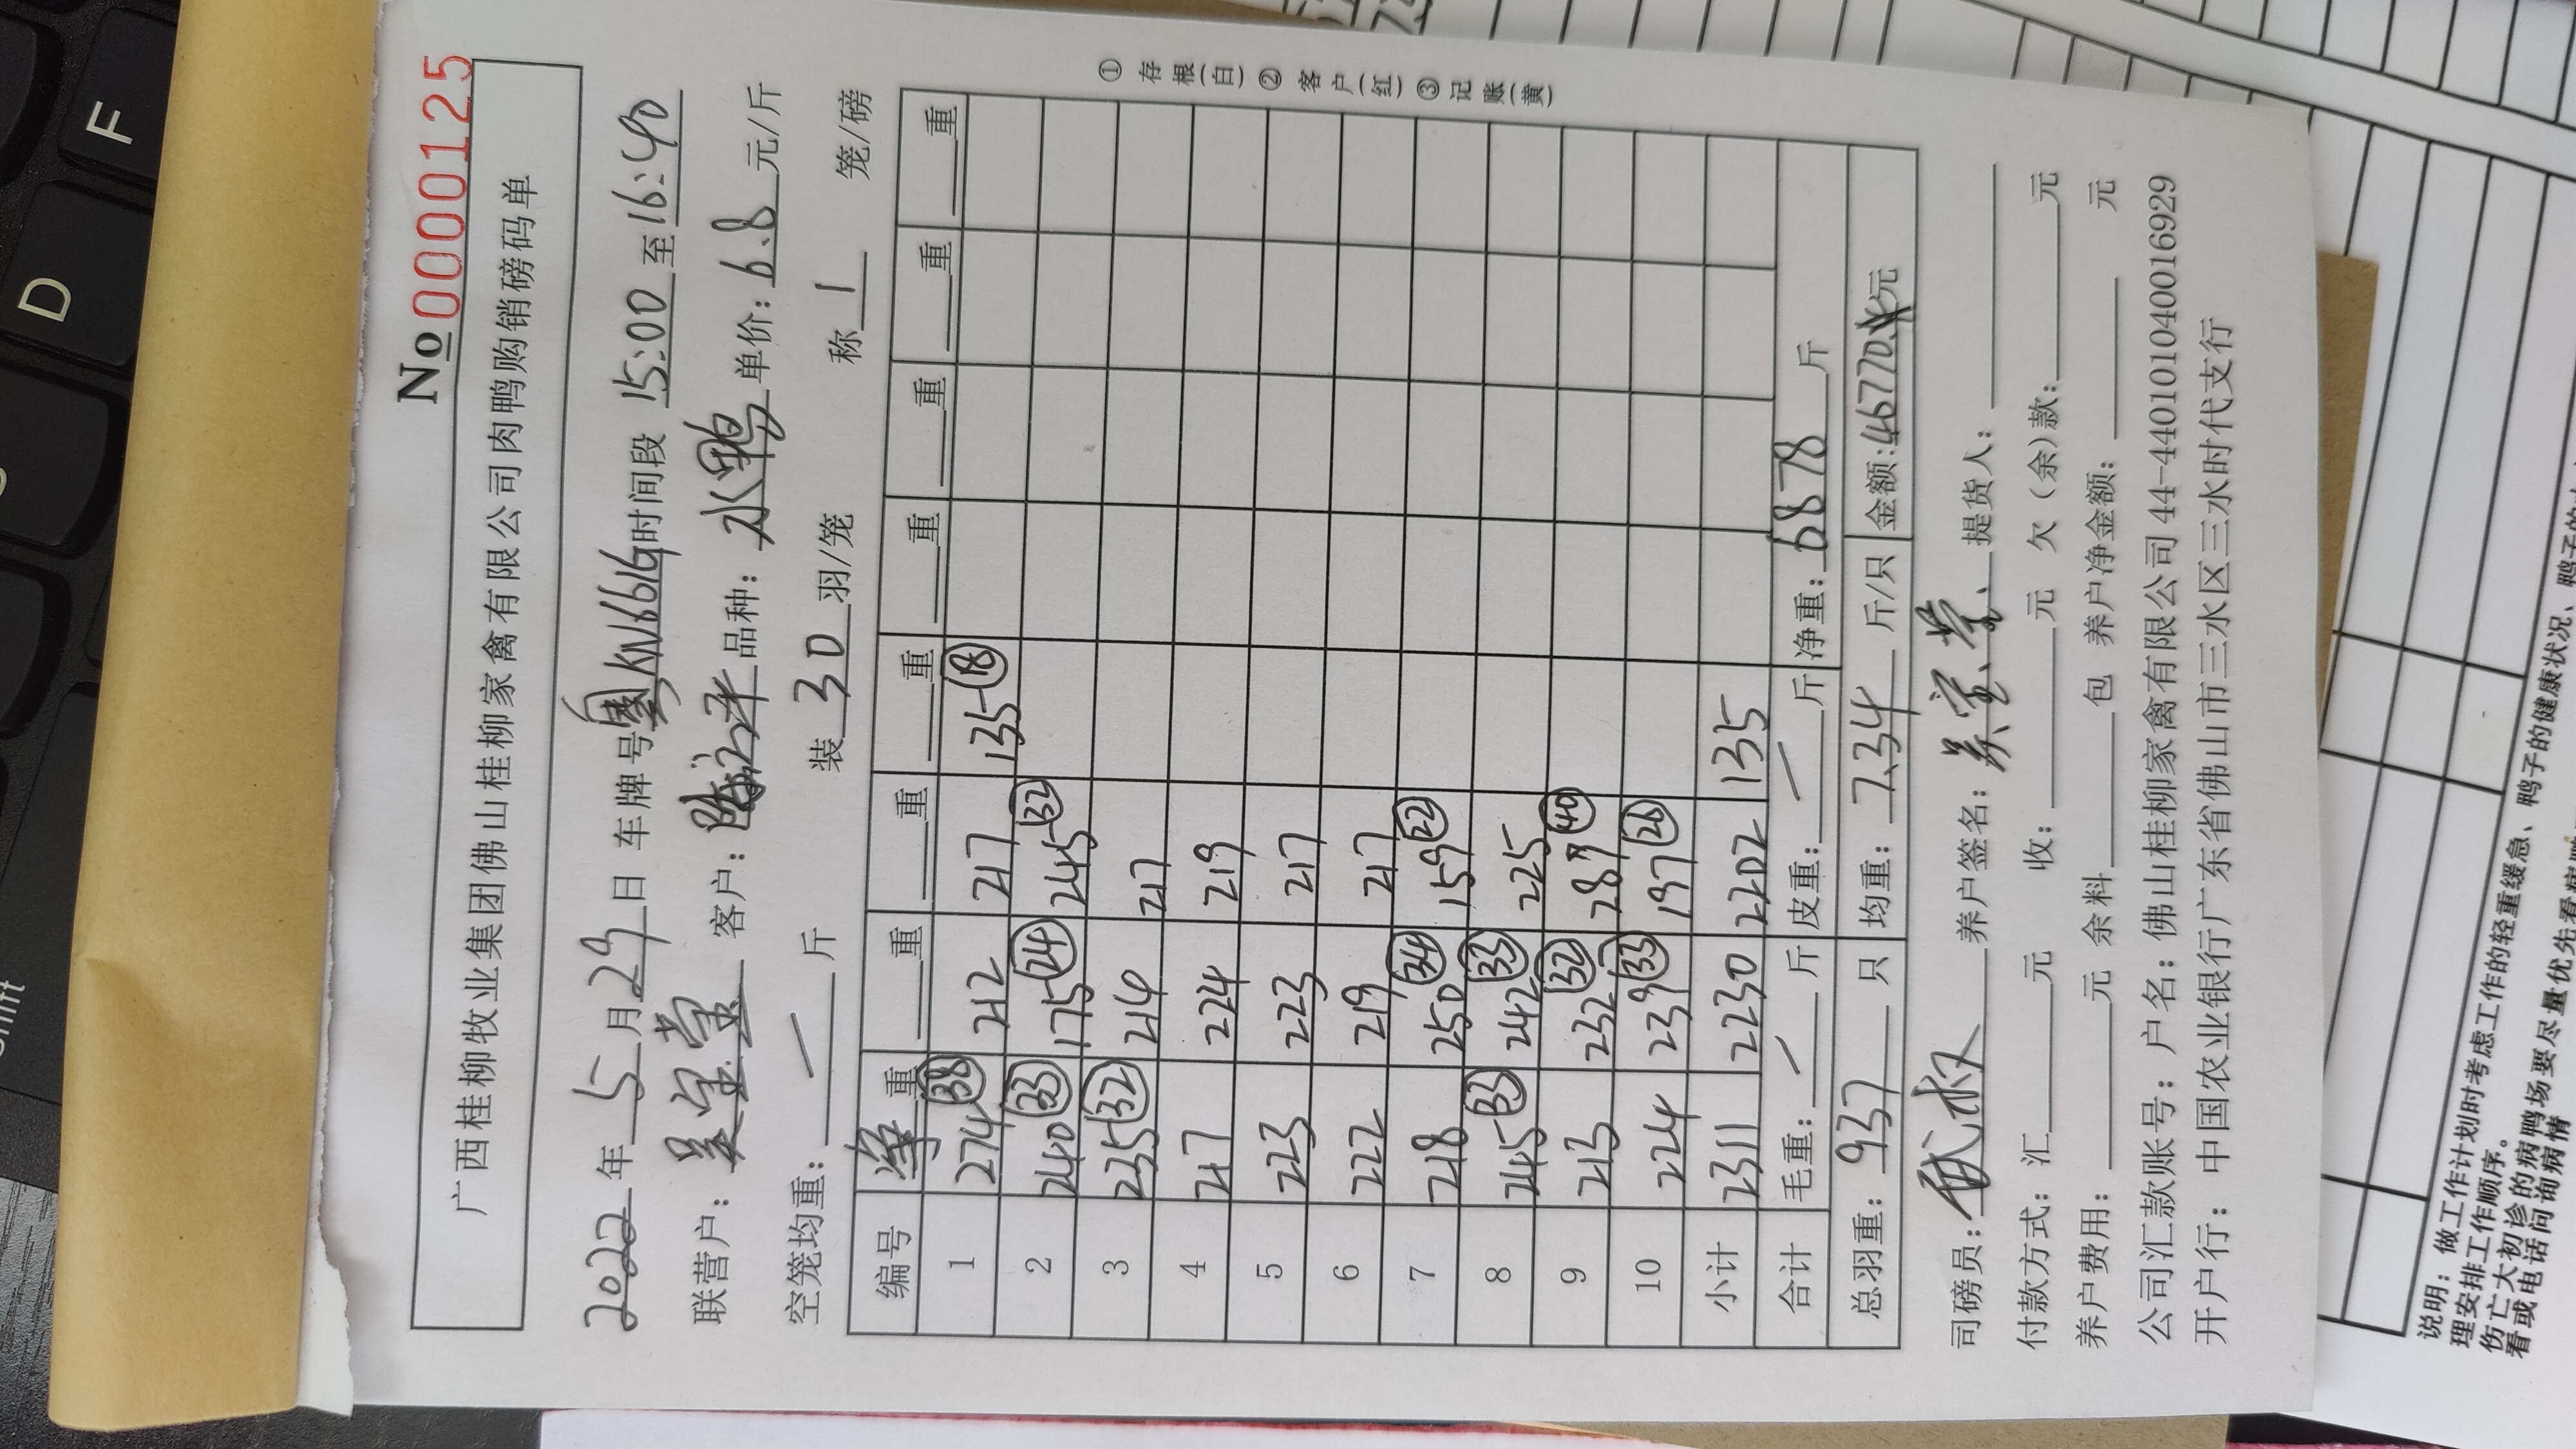 No 0000125
广西桂柳牧业集团佛山桂柳家禽有限公司肉鸭购销磅码单
2022年5月29日 车牌号粤KV661G时间段 15:00至16:40
联营户: 吴宝堂 客户: 品种: 水鸭 单价: 6.8 元/斤
空笼均重: / 斤 装 30 羽/笼 称 1 笼/磅
编号 净重 重 重 重 重 重 重 重
1 274(38) 212 217 135(18)
2 240(33) 175(24) 245(32)
3 235(32) 214 217
4 217 224 219
5 223 223 217
6 222 219 217
7 218 250(34) 159(22)
8 245(33) 242(33) 225
9 213 232(32) 289(40)
10 224 239(33) 197(26)
小计 2311 2230 2202 135
合计 毛重: / 斤 皮重: / 斤 净重: 6878 斤
总羽重: 937 只 均重: 7.34 斤/只 金额: 46770元
① 存根(白) ② 客户(红) ③ 记账(黄)
司磅员: 养户签名: 吴宝堂 提货人:
付款方式: 汇 元 收: 元 欠(余)款: 元
养户费用: 元 余料 包 养户净金额: 元
公司汇款账号: 户名: 佛山桂柳家禽有限公司 44-440101040016929
开户行: 中国农业银行广东省佛山市三水区三水时代支行
说明: 做工作计划时考虑工作的轻重缓急、鸭子的健康状况、
理安排工作顺序。
伤亡大初诊的病鸭场要尽量优先看
看或电话问询病情
Shift
D
F